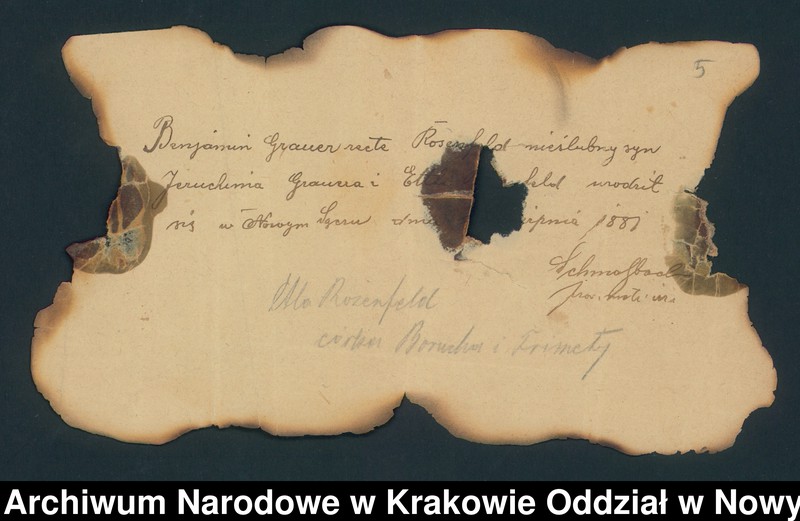 5
Benjamin Grauer recte Rosenfeld nieślubny syn
Jeruchma Grauera i Et feld urodził
się w Nowym Sączu dnia sierpnia 1881
Schmalbach
Etla Rozenfeld
córka Borucha i Frimety
Archiwum Narodowe w Krakowie Oddział w Nowy